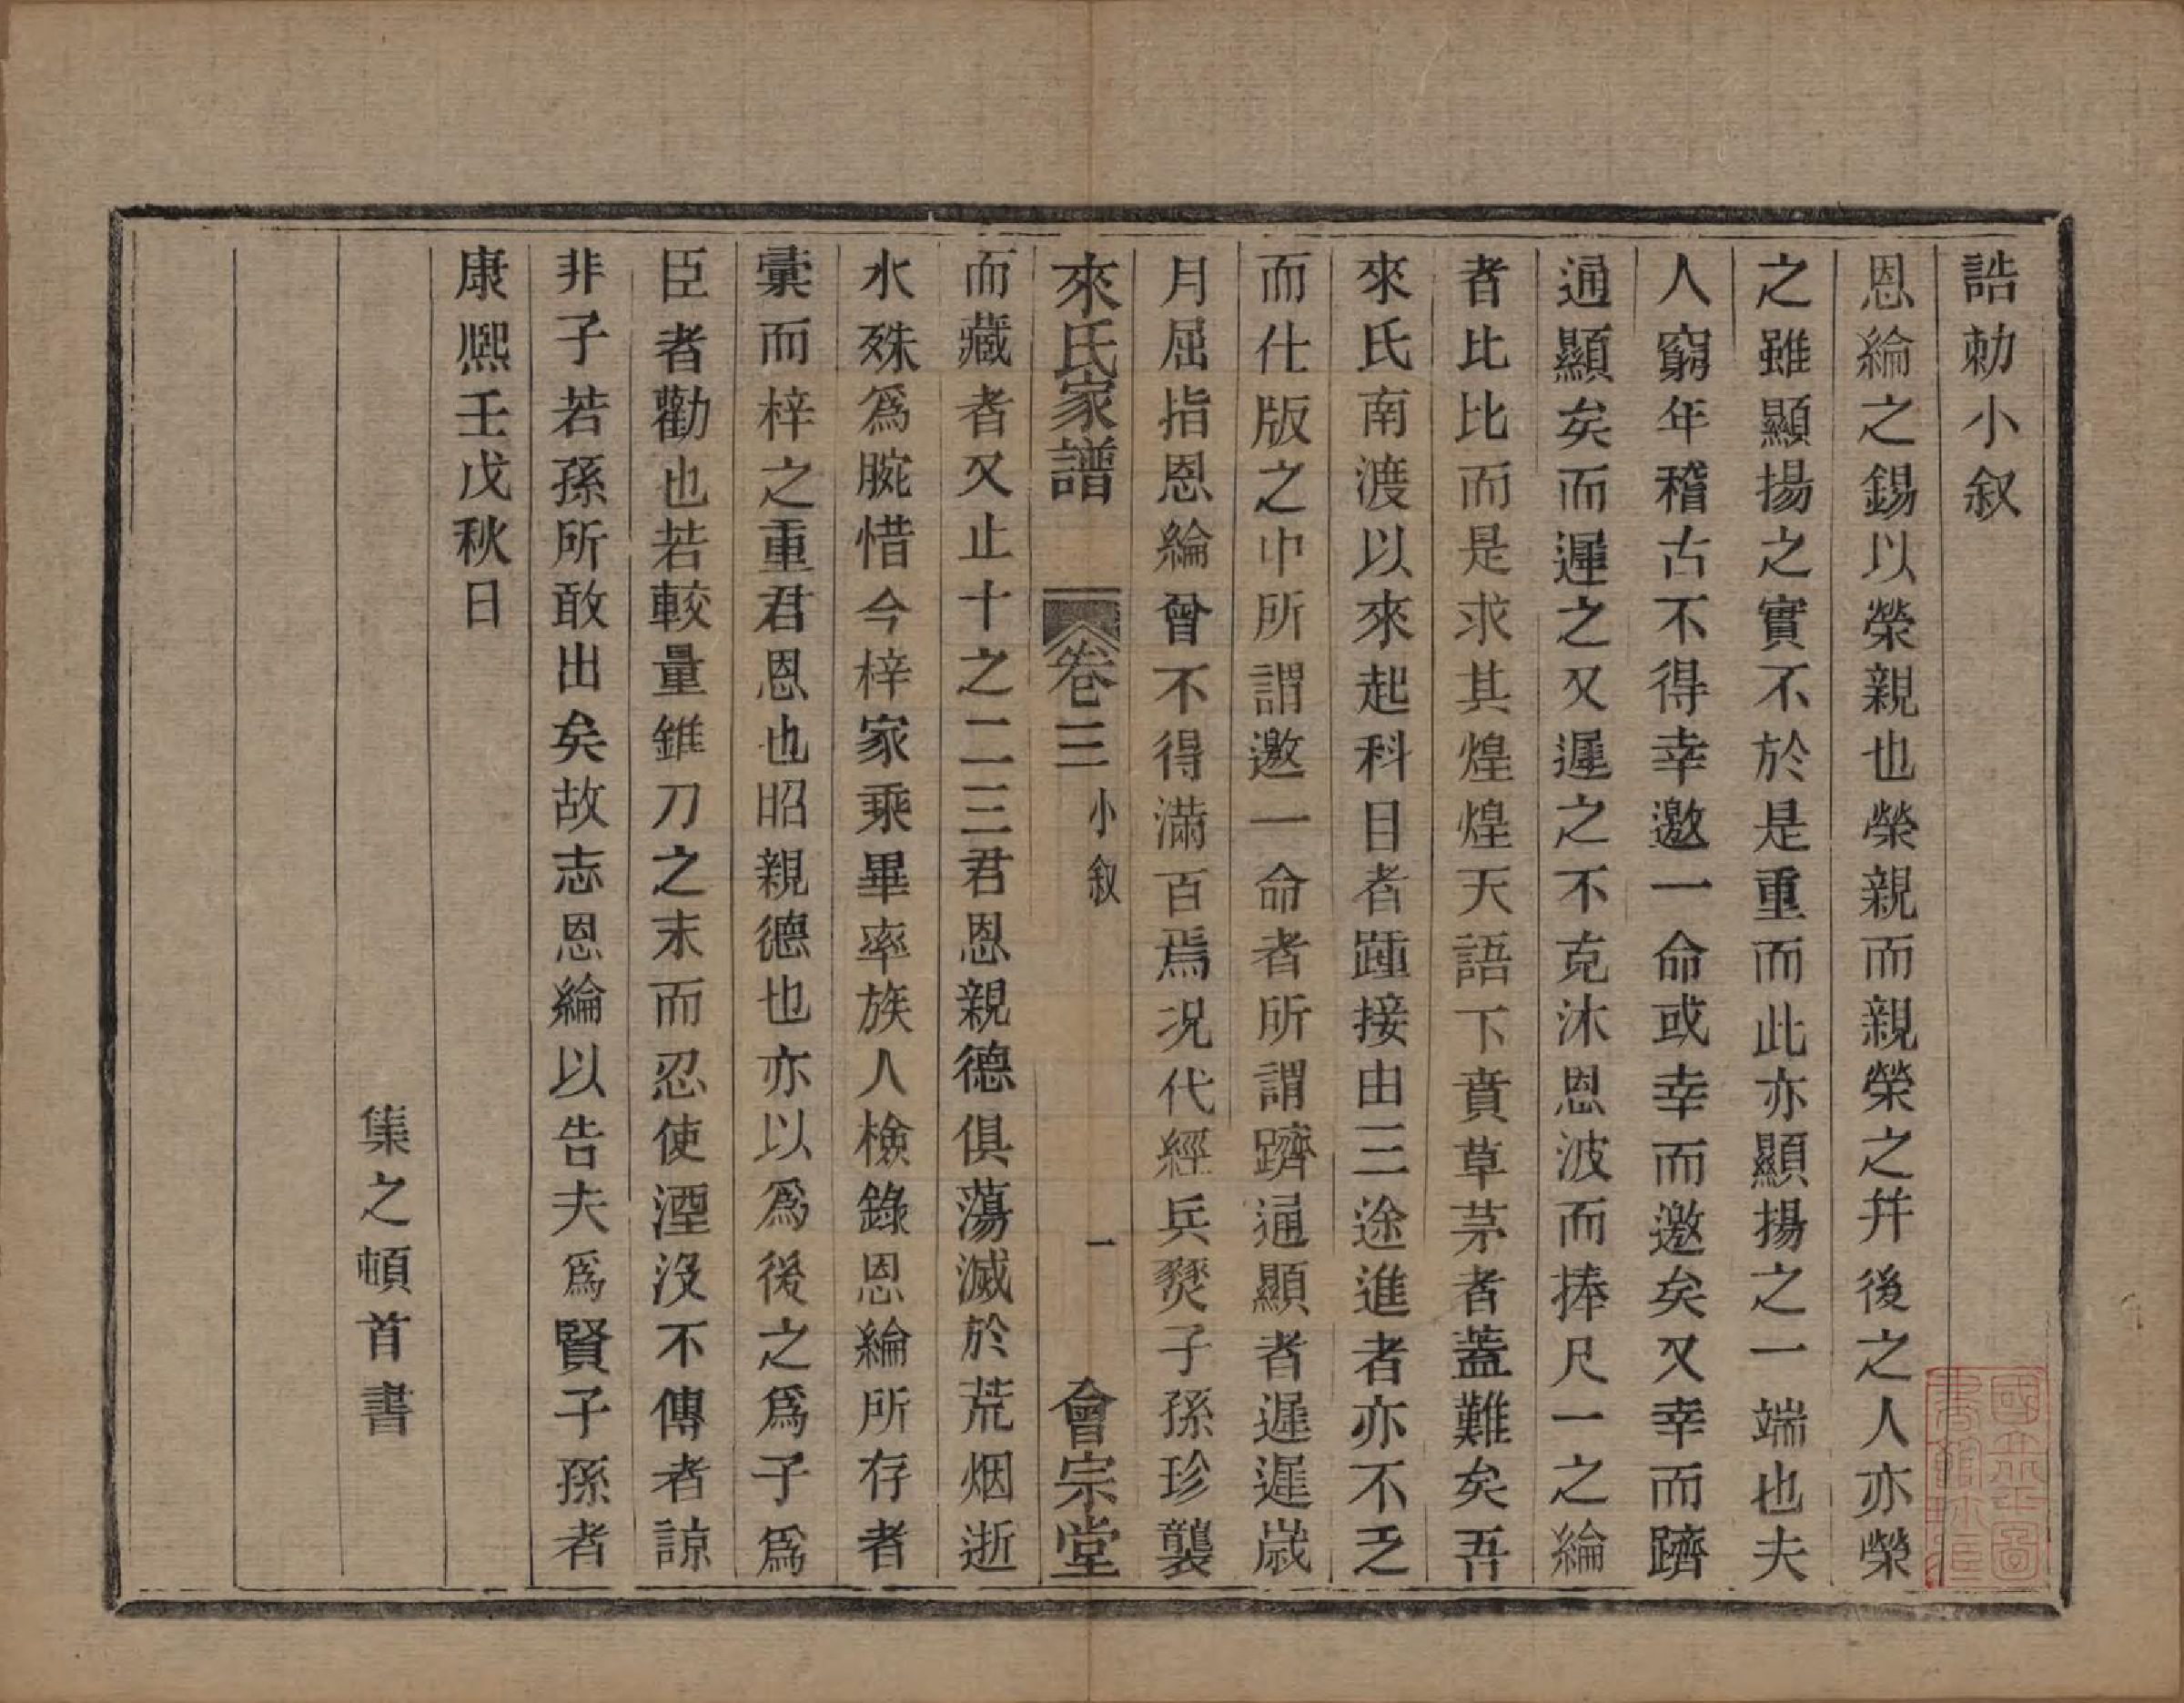 誥勅小叙
恩綸之錫以榮親也榮親而親榮之幷後之人亦榮
之雖顯揚之實不於是重而此亦顯揚之一端也夫
人窮年稽古不得幸邀一命或幸而邀矣又幸而躋
通顯矣而遲之又遲之不克沐恩波而捧尺一之綸
者比比而是求其煌煌天語下賁草茅者蓋難矣吾
來氏南渡以來起科目者踵接由三途進者亦不乏
而仕版之中所謂邀一命者所謂躋通顯者遲遲歲
月屈指恩綸曾不得滿百焉况代經兵燹子孫珍襲
來氏家譜 卷三 小叙 一 會宗堂
而藏者又止十之二三君恩親德俱蕩滅於荒烟逝
水殊爲腕惜今梓家乘畢率族人檢錄恩綸所存者
彙而梓之重君恩也昭親德也亦以爲後之爲子爲
臣者勸也若較量錐刀之末而忍使湮沒不傳者諒
非子若孫所敢出矣故志恩綸以告夫爲賢子孫者
康熙壬戊秋日
集之頓首書
國立北平圖書館珍藏